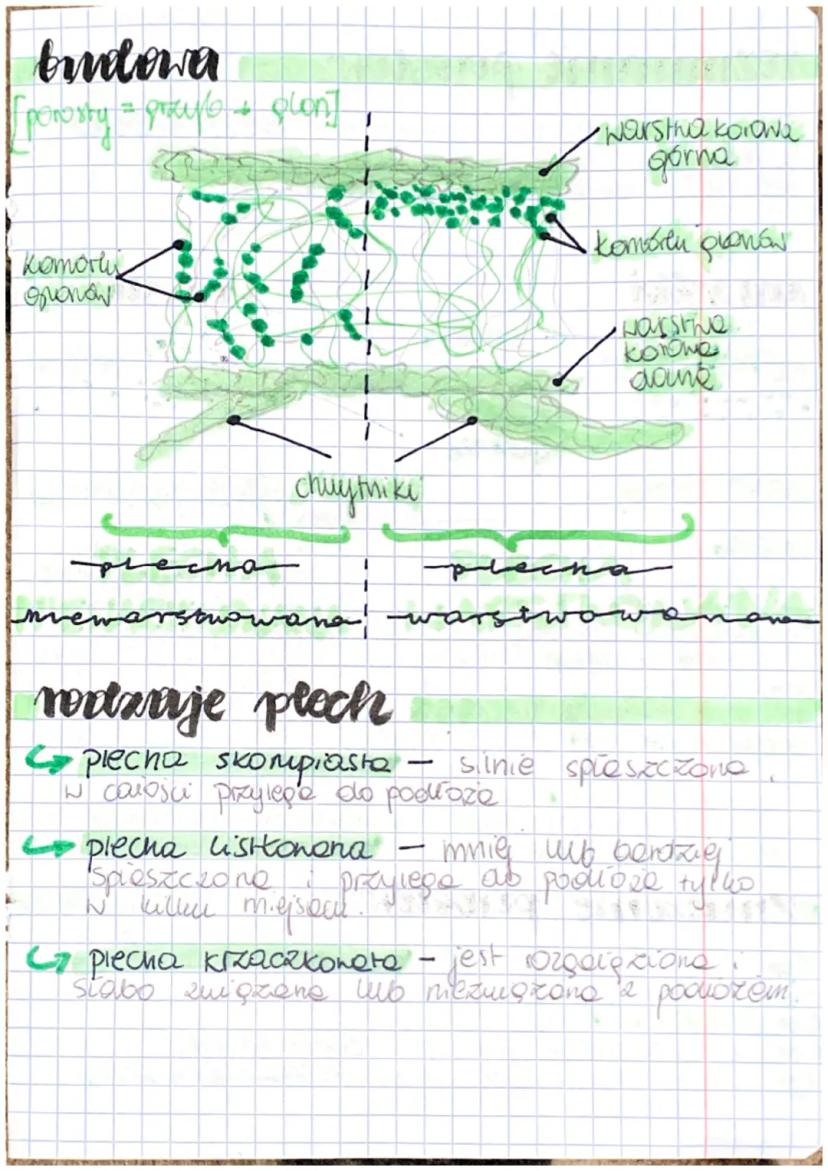 budowa
[porosty = grzyb + glon]
warstwa korowa
górna
komórki glonów
komórki
glonów
warstwa
korowa
dolna
chwytniki
plecha
niewarstwowana
plecha
warstwowana
rodzaje plech
↪ plecha skorupiasta — silnie spłaszczona,
w całości przylega do podłoża
↪ plecha listkowana — mniej lub bardziej
spłaszczona i przylega do podłoża tylko
w kilku miejscach.
↪ plecha krzaczkowata — jest rozgałęziona i
słabo związana lub niezwiązana z podłożem.